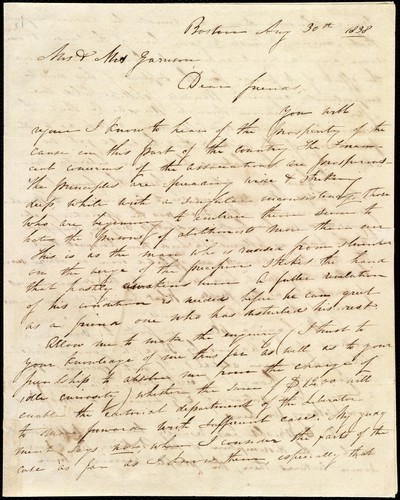 Boston Aug 30th 1838
Mr & Mrs Garrison
Dear friends,
You will
rejoice I know to hear of the prosperity of the
cause in this part of the country The finan
cial concerns of the association are prosperous
The principles are spreading wide & strike
deep while with a singular inconsistency, those
who are beginning to embrace them seem to
hate the of abolitionists more than ever
this is as the man who is roused from slumber
on the verge of the precipice strikes the hand
that hastily awakens him A fuller revelation
of his condition is needed before he can greet
as a friend one who has disturbed his rest.
Allow me to make the enquiry, (I trust to
your knowledge of me this far as well as to your
friendship to absolve me from the charge of
idle curiosity) whether the sum of $1200 will
enable the editorial department of the Liberator
to move forward with sufficient ease. My judg
ment says no, when I consider the facts of the
case as far as I know them, especially that